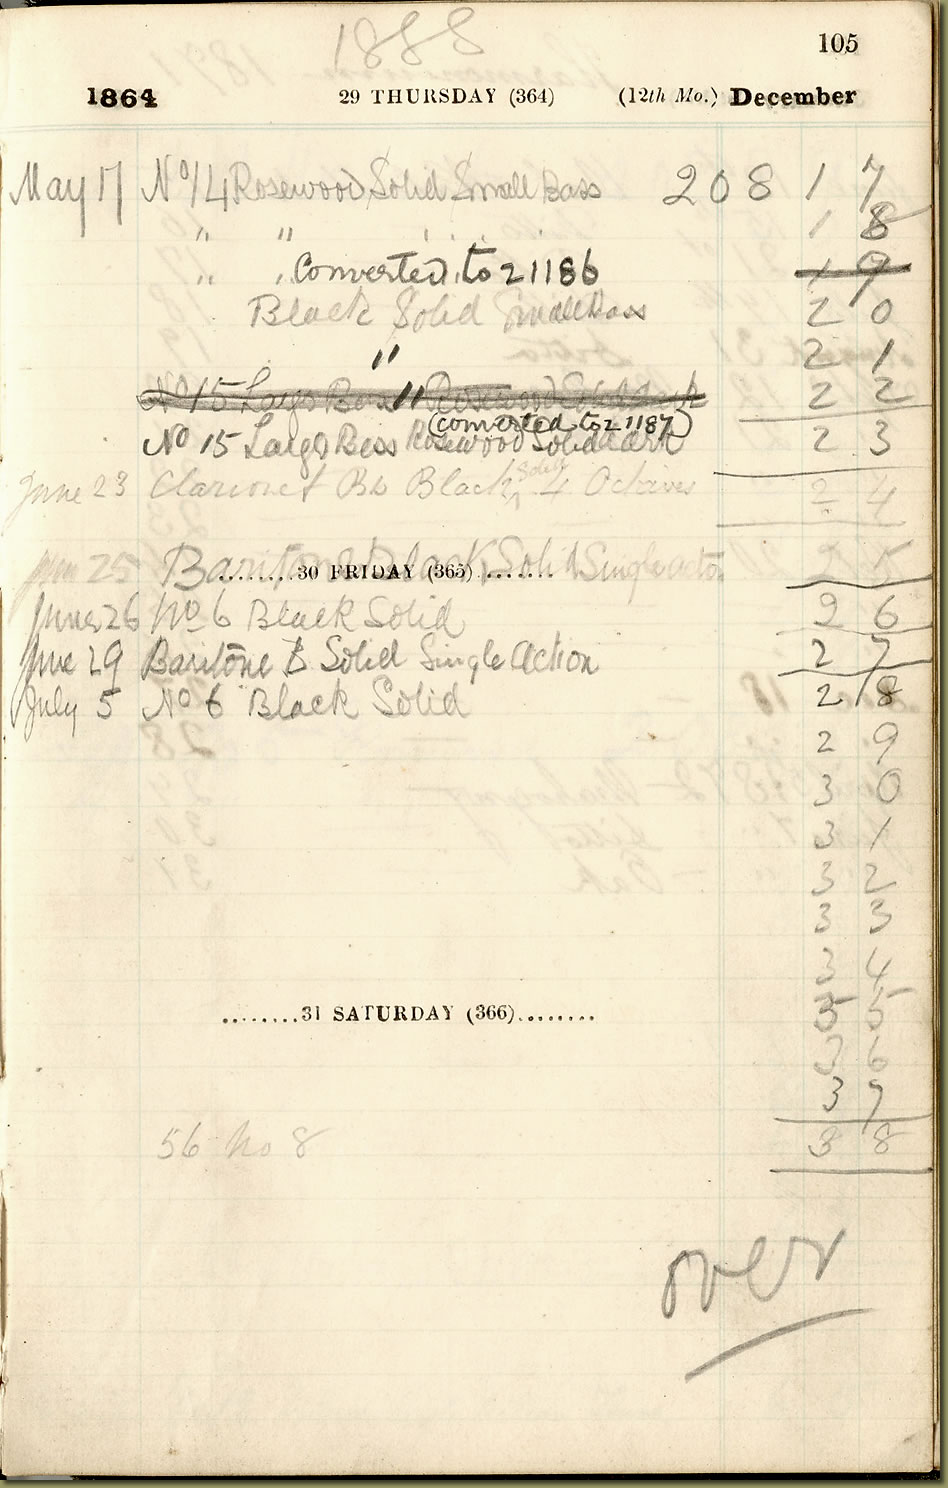 1888
105
1864 29 THURSDAY (364) (12th Mo.) December
May 17 No 14 Rosewood Solid Small Bass 208 1 7
" " 1 8
" " Converted to 21186 1 9
Black Solid Small Bass 2 0
" 2 1
No 15 Large Bass " Rosewood Solid 2 2
(converted to 21187)
No 15 Large Bass Rosewood Solid dark 2 3
June 23 Clarionet Bb Black Solid 4 Octaves 2 4
June 25 Baritone Black Solid Single action 2 5
........30 FRIDAY (365)........
June 26 No 6 Black Solid 2 6
June 29 Baritone B Solid Single Action 2 7
July 5 No 6 Black Solid 2 8
2 9
3 0
3 1
3 2
3 3
3 4
........31 SATURDAY (366)........ 3 5
3 6
3 7
56 No 8 3 8
over